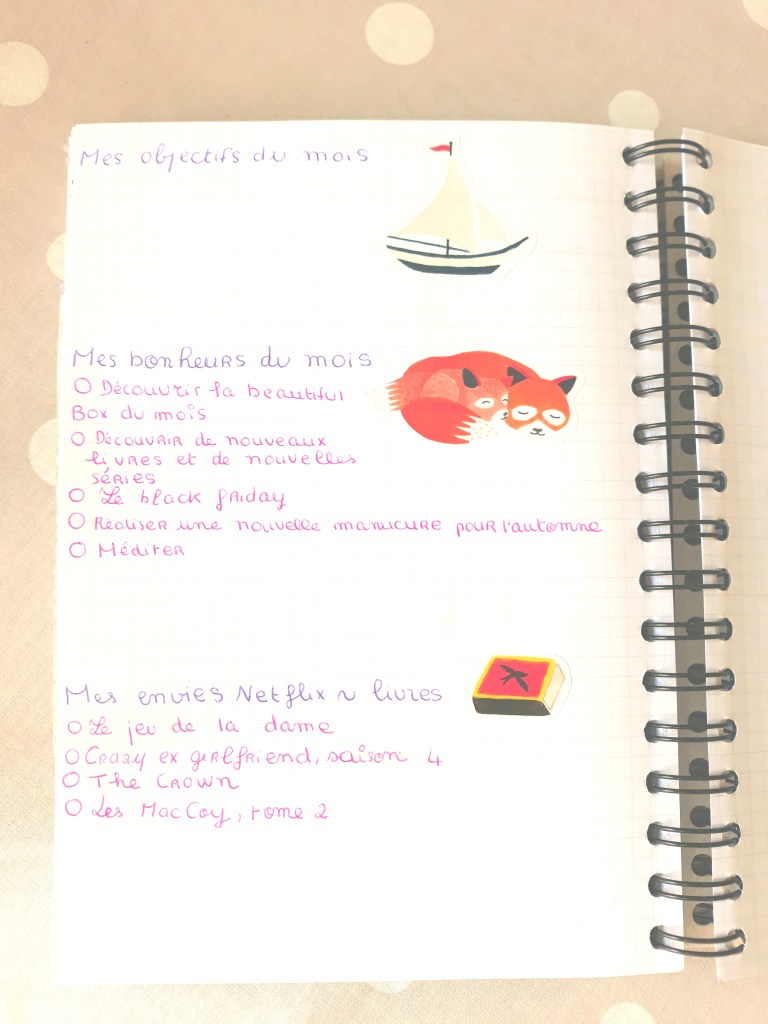 Mes objectifs du mois
Mes bonheurs du mois
O Découvrir la beautiful
Box du mois
O Découvrir de nouveaux
livres et de nouvelles
séries
O Le black friday
O Réaliser une nouvelle manucure pour l'automne
O Méditer
Mes envies Netflix ~ livres
O Le jeu de la dame
O Crazy ex girlfriend, saison 4
O The Crown
O Les MacCoy, tome 2